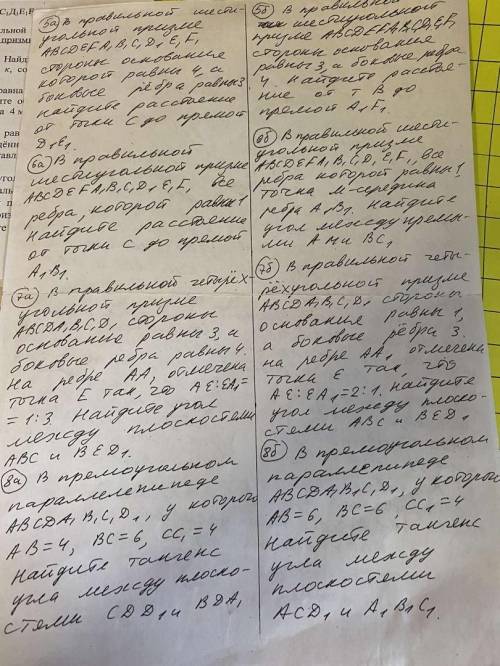 5а) В правильной шести-
угольной призме
ABCDEFA₁B₁C₁D₁E₁F₁
стороны основания
которой равны 4, а
боковые рёбра равны 3
найдите расстояние
от точки С до прямой
D₁E₁.
6а) В правильной
шестиугольной призме
ABCDEFA₁B₁C₁D₁E₁F₁ все
ребра, которой равны 1
Найдите расстояние
от точки С до прямой
A₁B₁
7а) В правильной четырёх-
угольной призме
ABCDA₁B₁C₁D₁ стороны
основание равны 3, а
боковые ребра равны 4.
На ребре AA₁ отмечена
точка E так, что AE:EA₁=
= 1:3. Найдите угол
между плоскостями
ABC и BED₁.
8а) В прямоугольном
параллелепипеде
ABCDA₁B₁C₁D₁, у которого
AB=4, BC=6, CC₁=4
Найдите тангенс
угла между плоско-
стями CDD₁ и BDA₁
5б) В правильной
шестиугольной
призме ABCDEFA₁B₁C₁D₁E₁F₁
стороны основания
равны 3, а боковые ребра
4. Найдите расстоя-
ние от т В до
прямой A₁F₁.
6б) В правильной шести-
угольной призме
ABCDEFA₁B₁C₁D₁E₁F₁, все
ребра которой равны 1,
точка M-середина
ребра A₁B₁. Найдите
угол между прямы-
ми AM и BC₁
7б) В правильной четы-
рёхугольной призме
ABCDA₁B₁C₁D₁ стороны
основание равны 1,
а боковые рёбра 3,
на ребре AA₁ отмечена
точка E так, что
AE:EA₁=2:1. Найдите
угол между плоско-
стями ABC и BED₁
8б) В прямоугольном
параллелепипеде
ABCDA₁B₁C₁D₁, у которого
AB=6, BC=6, CC₁=4
Найдите тангенс
угла между
плоскостями
ACD₁ и A₁B₁C₁.